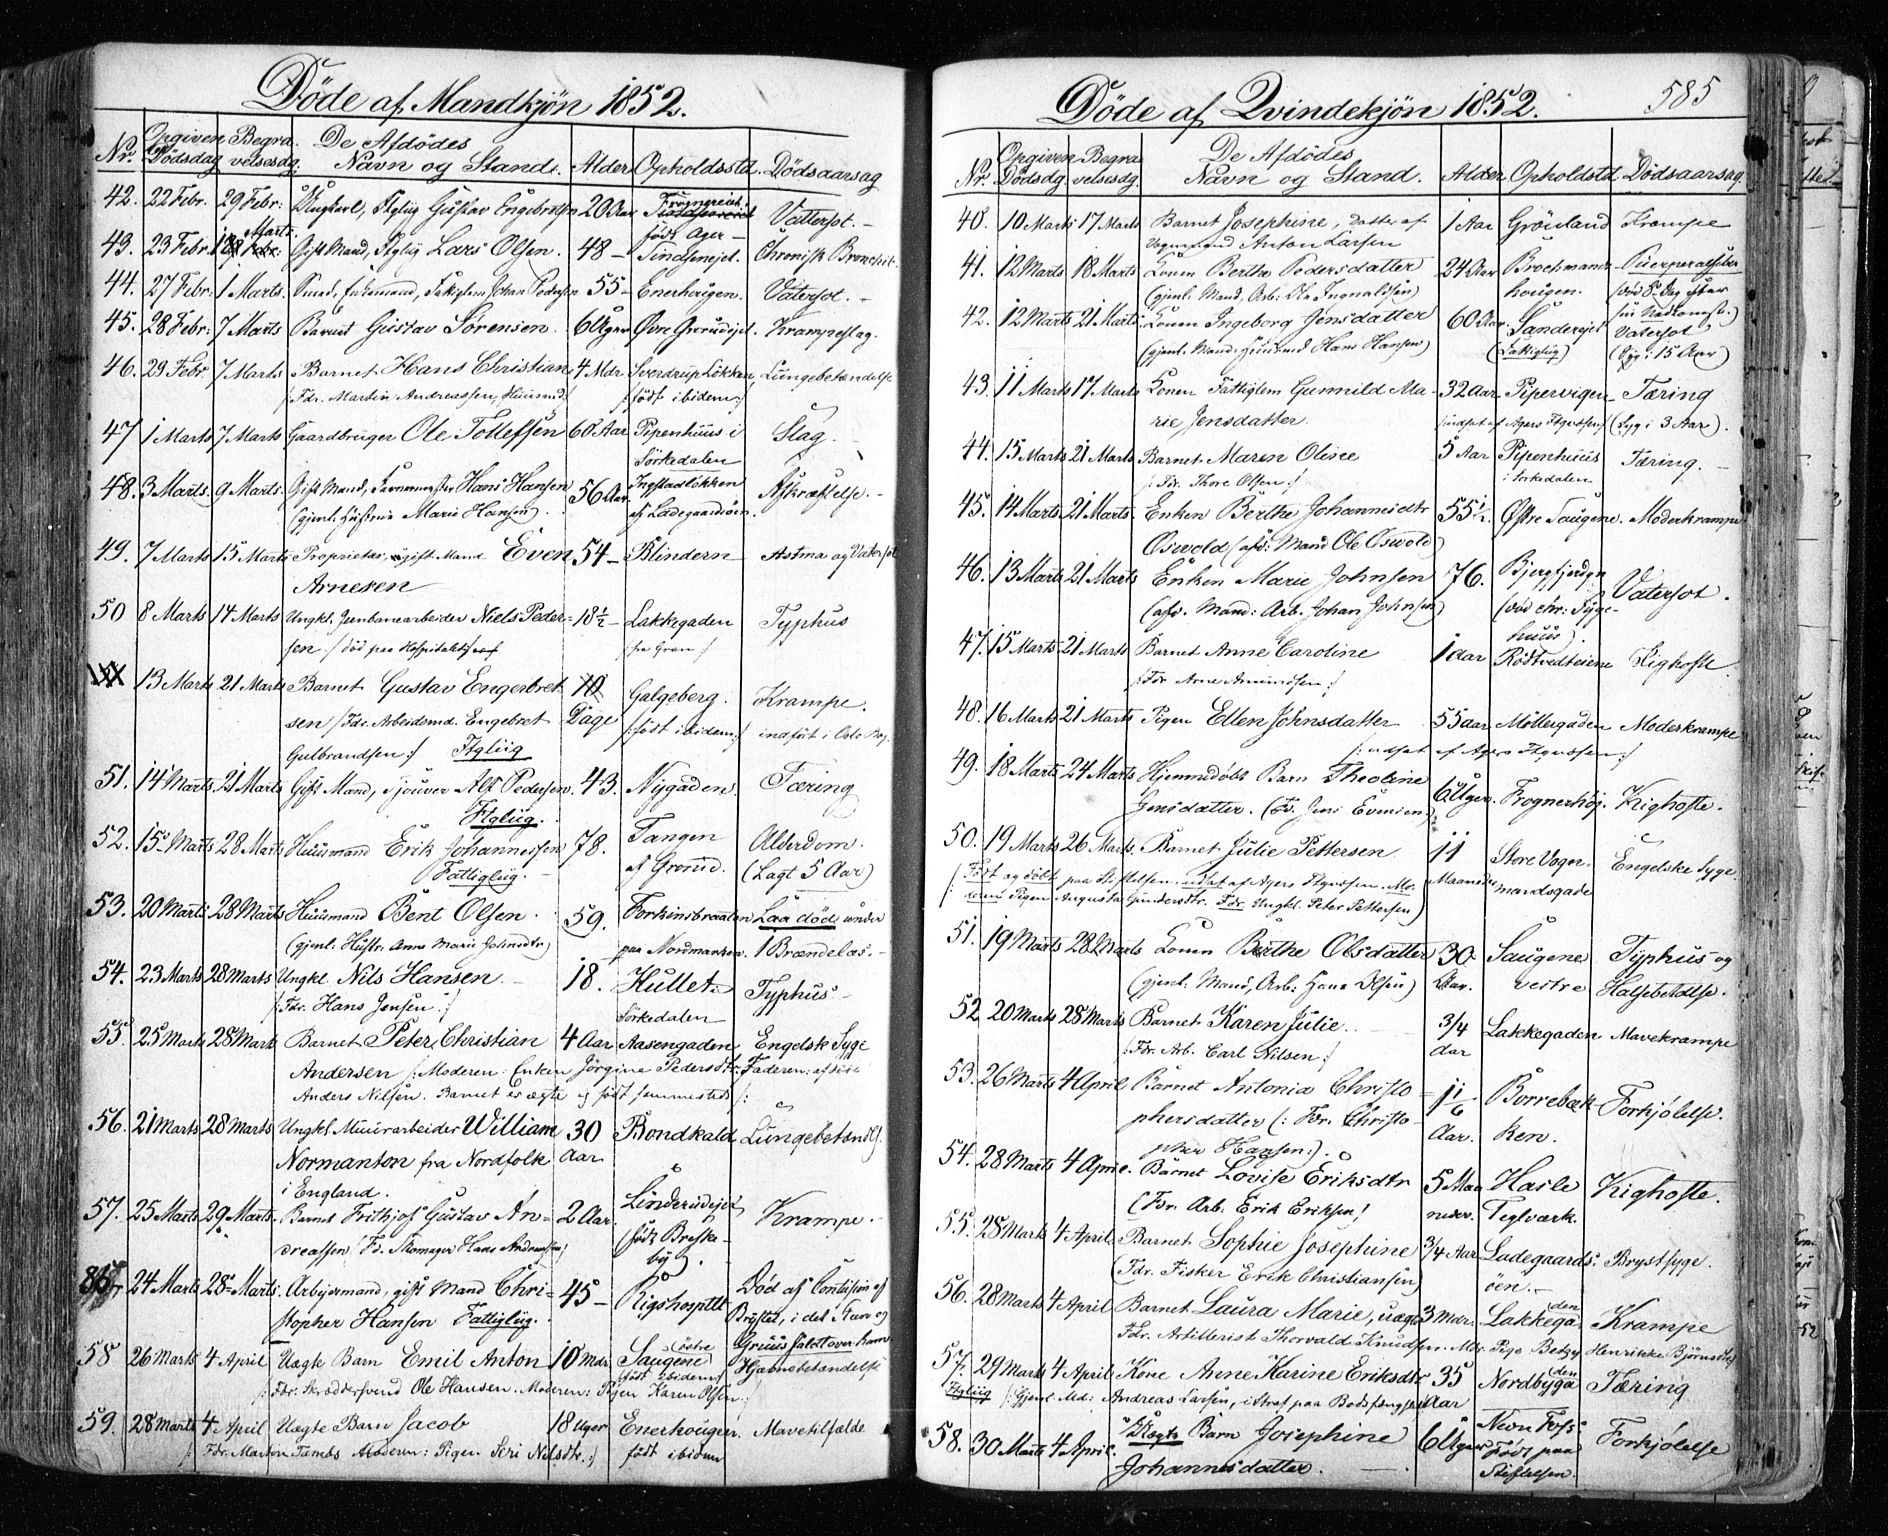 Döde af Mandkjön 1852.
Nr. Opgiven Dödsdag Begravelsesdg. De Afdödes Navn og Stand. Alder Opholdsstd. Dödsaarsag
42. 22 Febr. 29 Febr: Ungkarl, Ftgliig Gustav Engebretsen 20 Aar Frognereiet. Vattersot. –
födt Ager –
43. 23 Febr. Marts. Gift Mand, Ftgliig Lars Olsen. 48 – Tindsmejet. Chronisk Bronchit.
44. 27 Febr: 1 Marts. Smed, Enkemand, Fattiglem Johan Pedersen 55 – Enerhougen. Vatersot. –
45. 28 Febr: 7 Marts Barnet Gustav Sörensen. 6 Uger Övre Grorudejet. Krampeslag.
46. 29 Febr. 7 Marts Barnet Hans Christian 4 Mdr. Sverdrup Lökken, Lungebetændelse
/: Fdr. Martin Andreassen, Huusmd :/ /: födt ibidem :/
47 1 Marts 7 Marts Gaardbruger Ole Tollefsen 60 Aar Pipenhuus i Slag.
Sörkedalen
48. 3 Marts. 9 Marts. Gift Mand, Hans Hansen 56 Aar Ingstadlökken Afkræftelse. –
(gjenl: Hustrue Marie Hansen). af Ladegaardsöen.
49. 7 Marts 15 Marts Proprietær, gift Mand Even 54 – Blindern Astma og Vatersot
Arnesen
50 8 Marts 14 Marts Ungkl. Jernbanearbeider Niels Peder= 18 1/2 – Lakkegaden Typhus
sen /: död paa Hospitalet :/ /: fra Gran :/
13 Marts 21 Marts Barnet Gustav Engerbret 10 Galgeberg. Krampe.
sen /: Fdr. Arbeidsmd. Engebret Dage /: födt ibidem :/ indfört i Oslo Bog.
Gulbrandsen :/ Ftgliig
51. 14 Marts 21 Marts Gift Mand, Alf Pedersen. 43. Nygaden. Tæring
Ftgliig.
52. 15 Marts 28 Marts Huusmand Erik Johannessen 78. Tangen Alderdom.
Fattigliig. – af Grorud. (Lagt 5 Aar)
53. 20 Marts 28 Marts Huusmand Bent Olsen. 59. Forkinsbraaten Laa död under
(gjenl: Hustr. Anne Marie Johnsdtr) paa Nordmarken. 1 Brændelas. –
54. 23 Marts 28 Marts Ungkl. Nils Hansen. – 18. Hullet: Typhus –
/: Fdr. Hans Jensen :/ Sörkedalen
55. 25 Marts 28 Marts Barnet Peter Christian 4 Aar Aasengaden Engelsk Syge
Andersen /: Moderen: Enken Jörgine Pedersdtr. Faderen: afdöde
Anders Nilsen. Barnet er ægte og födt sammesteds :/
56. 21 Marts 28 Marts Ungkl. Muurarbeider William 30 Bondkald Lungebetændls.
Normanton fra Nordfolk Aar
i England.
57. 25 Marts 29 Marts. Barnet Frithjof Gustav An= 2 Aar. Linderudejet Krampe. –
dreassen /: Fr. Skomager Hans Andreassen :/ (födt Breske-
by).
24 Marts 28 Marts. Arbejdsmand, gift Mand Chri- 45 – Rigshospitlt Död af Contusion af
stopher Hansen Fattigliig. Brystet, i det 1 Steen og
58 26 Marts 4 April Uægte Barn Emil Anton 10 Mdr. Saugene (östre Gruus faldt over ham
födt ibidem) Hjernebetændelse
/: Fdr. Skræddersvend Ole Hansen. Moderen: Pigen Karen Olsen :/
59. 28 Marts 4 April Uægte Barn Jacob 18 Uger Enerhougen. Mavetilfælde
/: Fdr. Morten Tambs Moderen: Pigen Seri Nilsdtr. :/ födt ibidem
Döde af Qvindekjön 1852. 585
Nr. Opgiven Dödsdg. Begravelsesdg. De Afdödes Navn og Stand. Alder Opholdstd. Dödsaarsag.
40. 10 Marts 17 Marts Barnet Josephine, Datter af 1 Aar Grönland Krampe
Vognmand Anton Larsen
41. 12 Marts 18 Marts Konen Berthe Pedersdatter 24 Aar Brochmands- Puerperalfeber
(gjenl: Mand, Arb: Ole Ingvaldsen) hougen. (död 8de Dag efter
sin Nedkomst.)
42. 12 Marts 21 Marts. Konen Ingeborg Jensdatter 60 Aar Sandersejet Vatersot
(gjenl. Mand: Huusmd Hans Hansen) (Fattigliig) (Syg i 15 Aar)
43. 11 Marts 17 Marts Konen Fattiglem Gunnild Ma- 32 Aar Pipervigen Tæring
rie Jensdatter. /: indsat af Agers Ftgvæsen :/ (Syg i 3 Aar).
44. 15 Marts 21 Marts Barnet Maren Oline 5 Aar Pipenhuus Tæring. –
/: Fdr. Thore Olsen :/ i Sörkedalen
45. 14 Marts 21 Marts. Enken Berthe Johannesdtr 55 1/2. Östre Saugene. Moderkrampe
Oswold (afd: Mand Ole Oswold)
46. 13 Marts 21 Marts Enken Marie Johnsen 76. Bjergfjerdgn Vatersot.
(afd. Mand: Arb. Johan Johnsen) (död chr: Syge-
huus).
47. 15 Marts 21 Marts Barnet Anne Caroline 1 Aar Rödtvedteiene Kighoste.
/: Fdr Arne Amundsen :/
48. 16 Marts 21 Marts Pigen Ellen Johnsdatter 55 aar Möllergaden Moderkrampe
/: udsat af Agers Ftgvæsen :/
49. 18 Marts 24 Marts Hjemmedöbt Barn Theoline 6 Uger. Frognerhöj. Kighoste.
Jensdatter. (Fr. Jens Evensen)
50. 19 Marts 26 Marts. Barnet Julie Pettersen 11 Store Vogn- Engelske Syge
/: Födt og döbt paa Stiftelsen. udsat af Agers Ftgvæsen. Mo- Maaneder mandsgade
deren Pigen Augusta Gundersdtr. Fdr. Ungkl. Peter Pettersen)
51. 19 Marts 28 Marts Konen Berthe Olsdatter 30 Saugene Typhus og
(gjenl. Mand, Arb: Hans Olsen) Aar. vestre Halsebetdlse.
52 20 Marts 28 Marts Barnet Karen Julie. 3/4 Lakkegaden Mavekrampe
/: Fdr. Arb. Carl Nilsen :/ Aar
53. 26 Marts 4 April Barnet Antonia Christo= 1 1/6 Borrebæk- Forkjölelse.
phersdatter (: Fdr. Christo- Aar. ken.
pher Hansen :).
54. 28 Marts 4 April. Barnet Lovise Eriksdtr 5 Maa Hasle Kighoste.
(Fdr. Arb. Erik Eriksen) neder. Teglværk.
55. 28 Marts 4 April Barnet Sophie Josephine 3/4 Aar Ladegaards= Brystsyge.
(Fdr. Fisker Erik Christiansen) öen. –
56. 28 Marts 4 April Barnet Laura Marie, uægte 3 Mdr. Lakkegaden Krampe
Fdr. Artillerist Thorvald Knudsen. Mdr. Pige Betzy Henrikke Björnsdtr
57. 29 Marts 4 April Kone Anne Karine Eriksdtr 35 Nordbygaden Tæring
Ftgliig /: Gjenl Md: Andreas Larsen, i Straf paa Bodsfængslet Aar
58. 30 Marts 4 April. Uægte Barn Josephine 6 Uger Nedn Foss Forkjölelse
Johannesdatter. – födt paa
Stiftelsen.